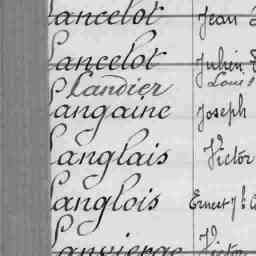 Lancelot Jean
Lancelot Julien
Landier Louis
Langaine Joseph
Langlais Victor
Langlois Ernest
Lanvierge Victor